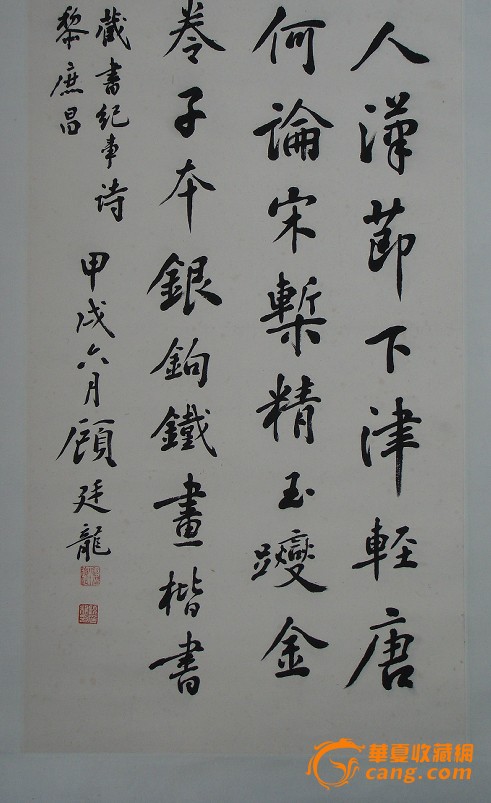 人漢節下津輕唐
何論宋槧精玉躞金
卷子本銀鉤鐵畫楷書
藏書紀事诗
黎庶昌
甲戌六月顧廷龍
華夏收藏網
cang.com